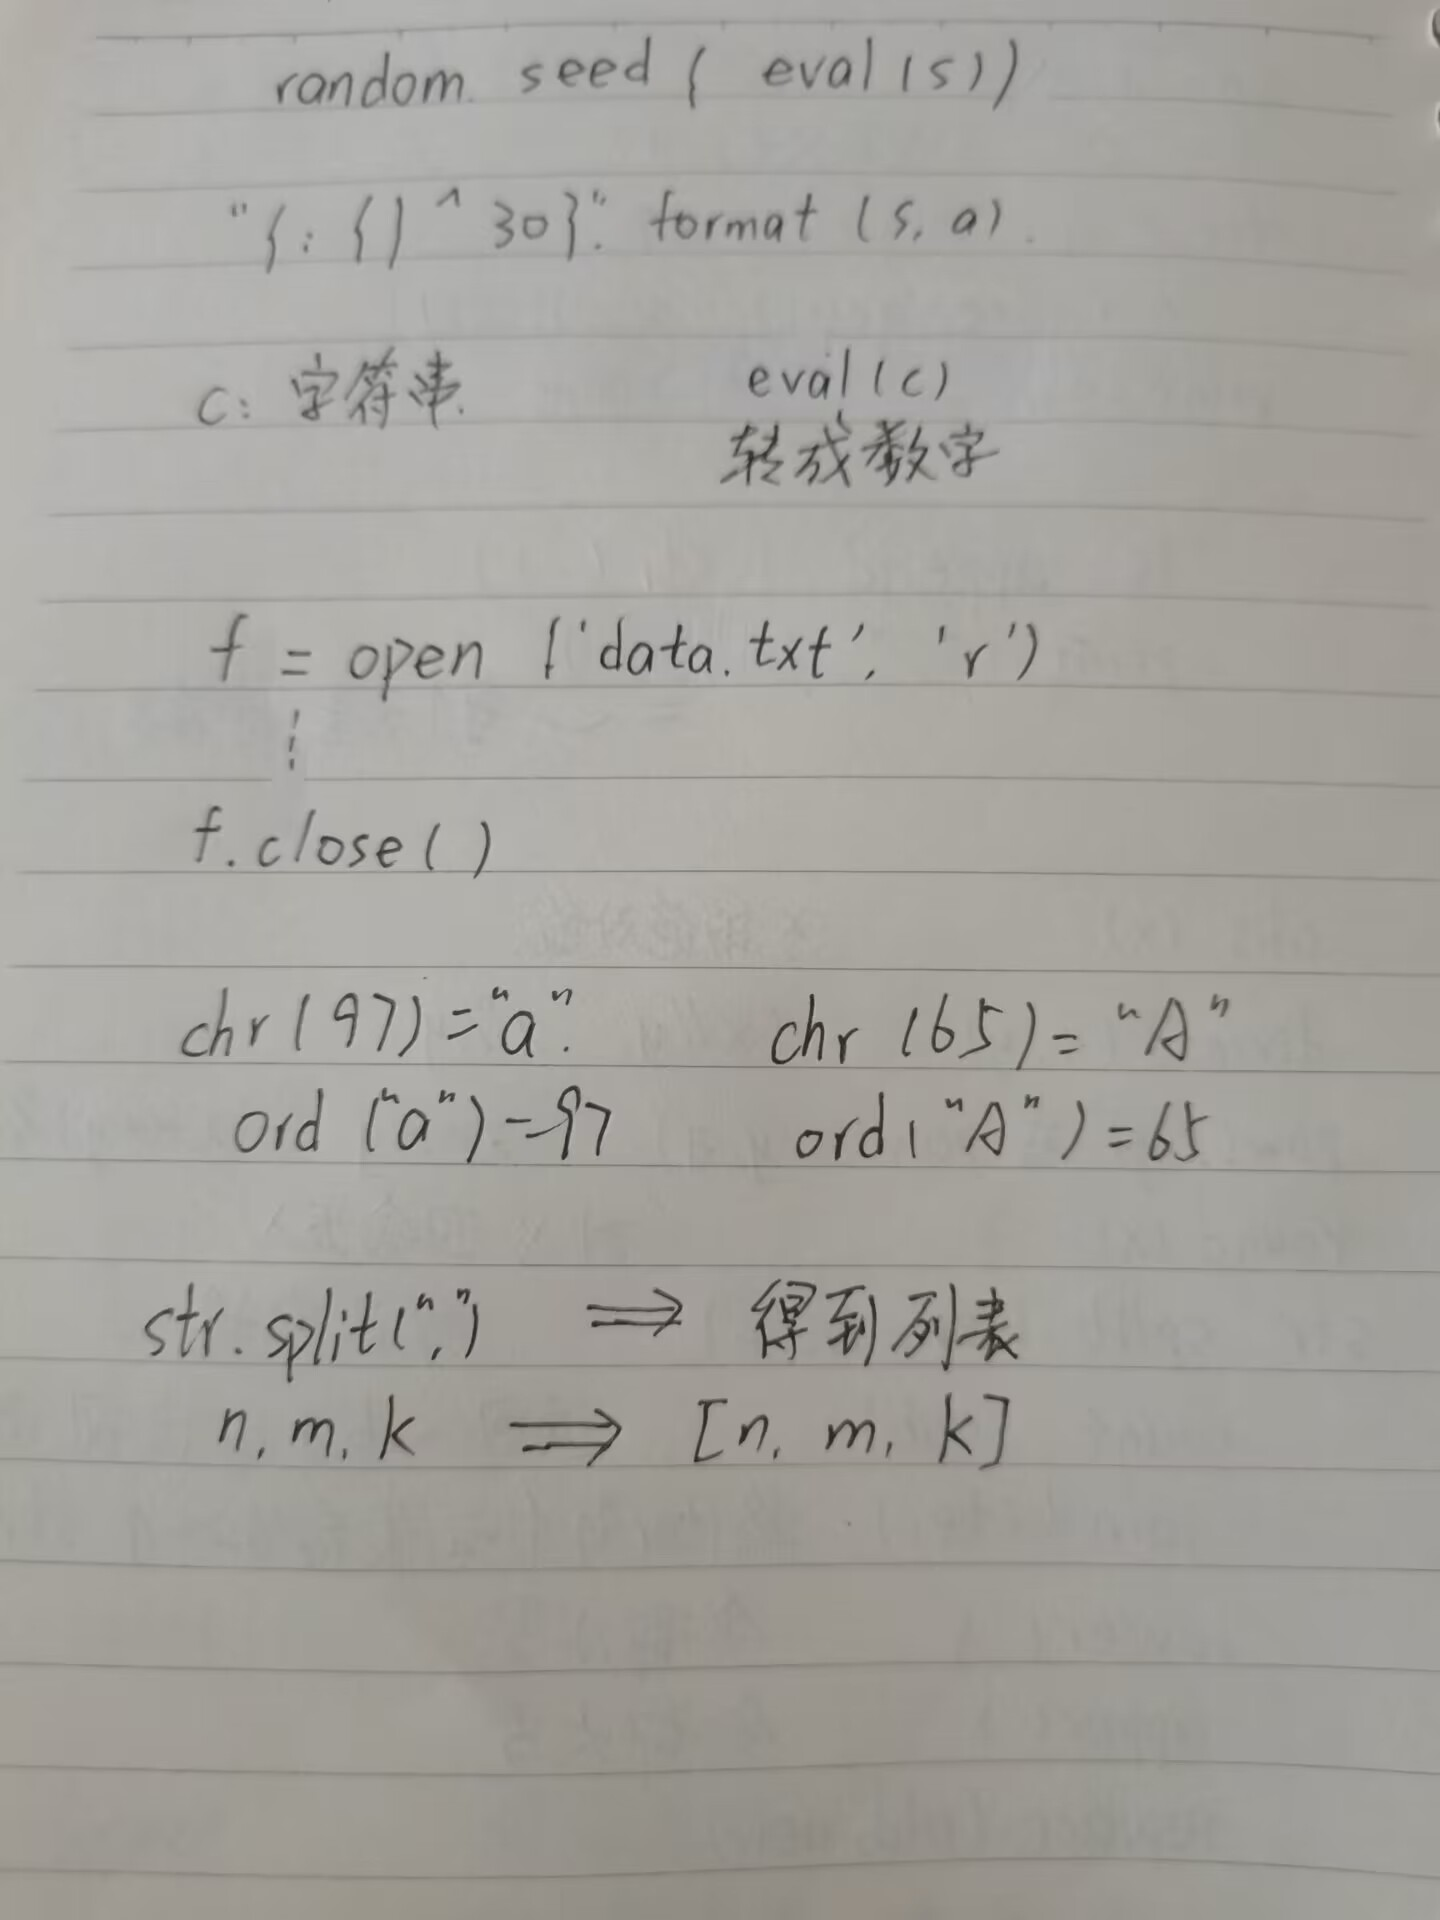 random. seed ( eval (s))
"{:{}^30}". format (s, a).
c: 字符串. eval(c)
转成数字
f = open ('data.txt', 'r')
⋮
f.close()
chr(97)="a". chr(65)= "A"
ord ("a")=97 ord("A")=65
str.split(",") ⇒ 得到列表
n, m, k ⇒ [n, m, k]